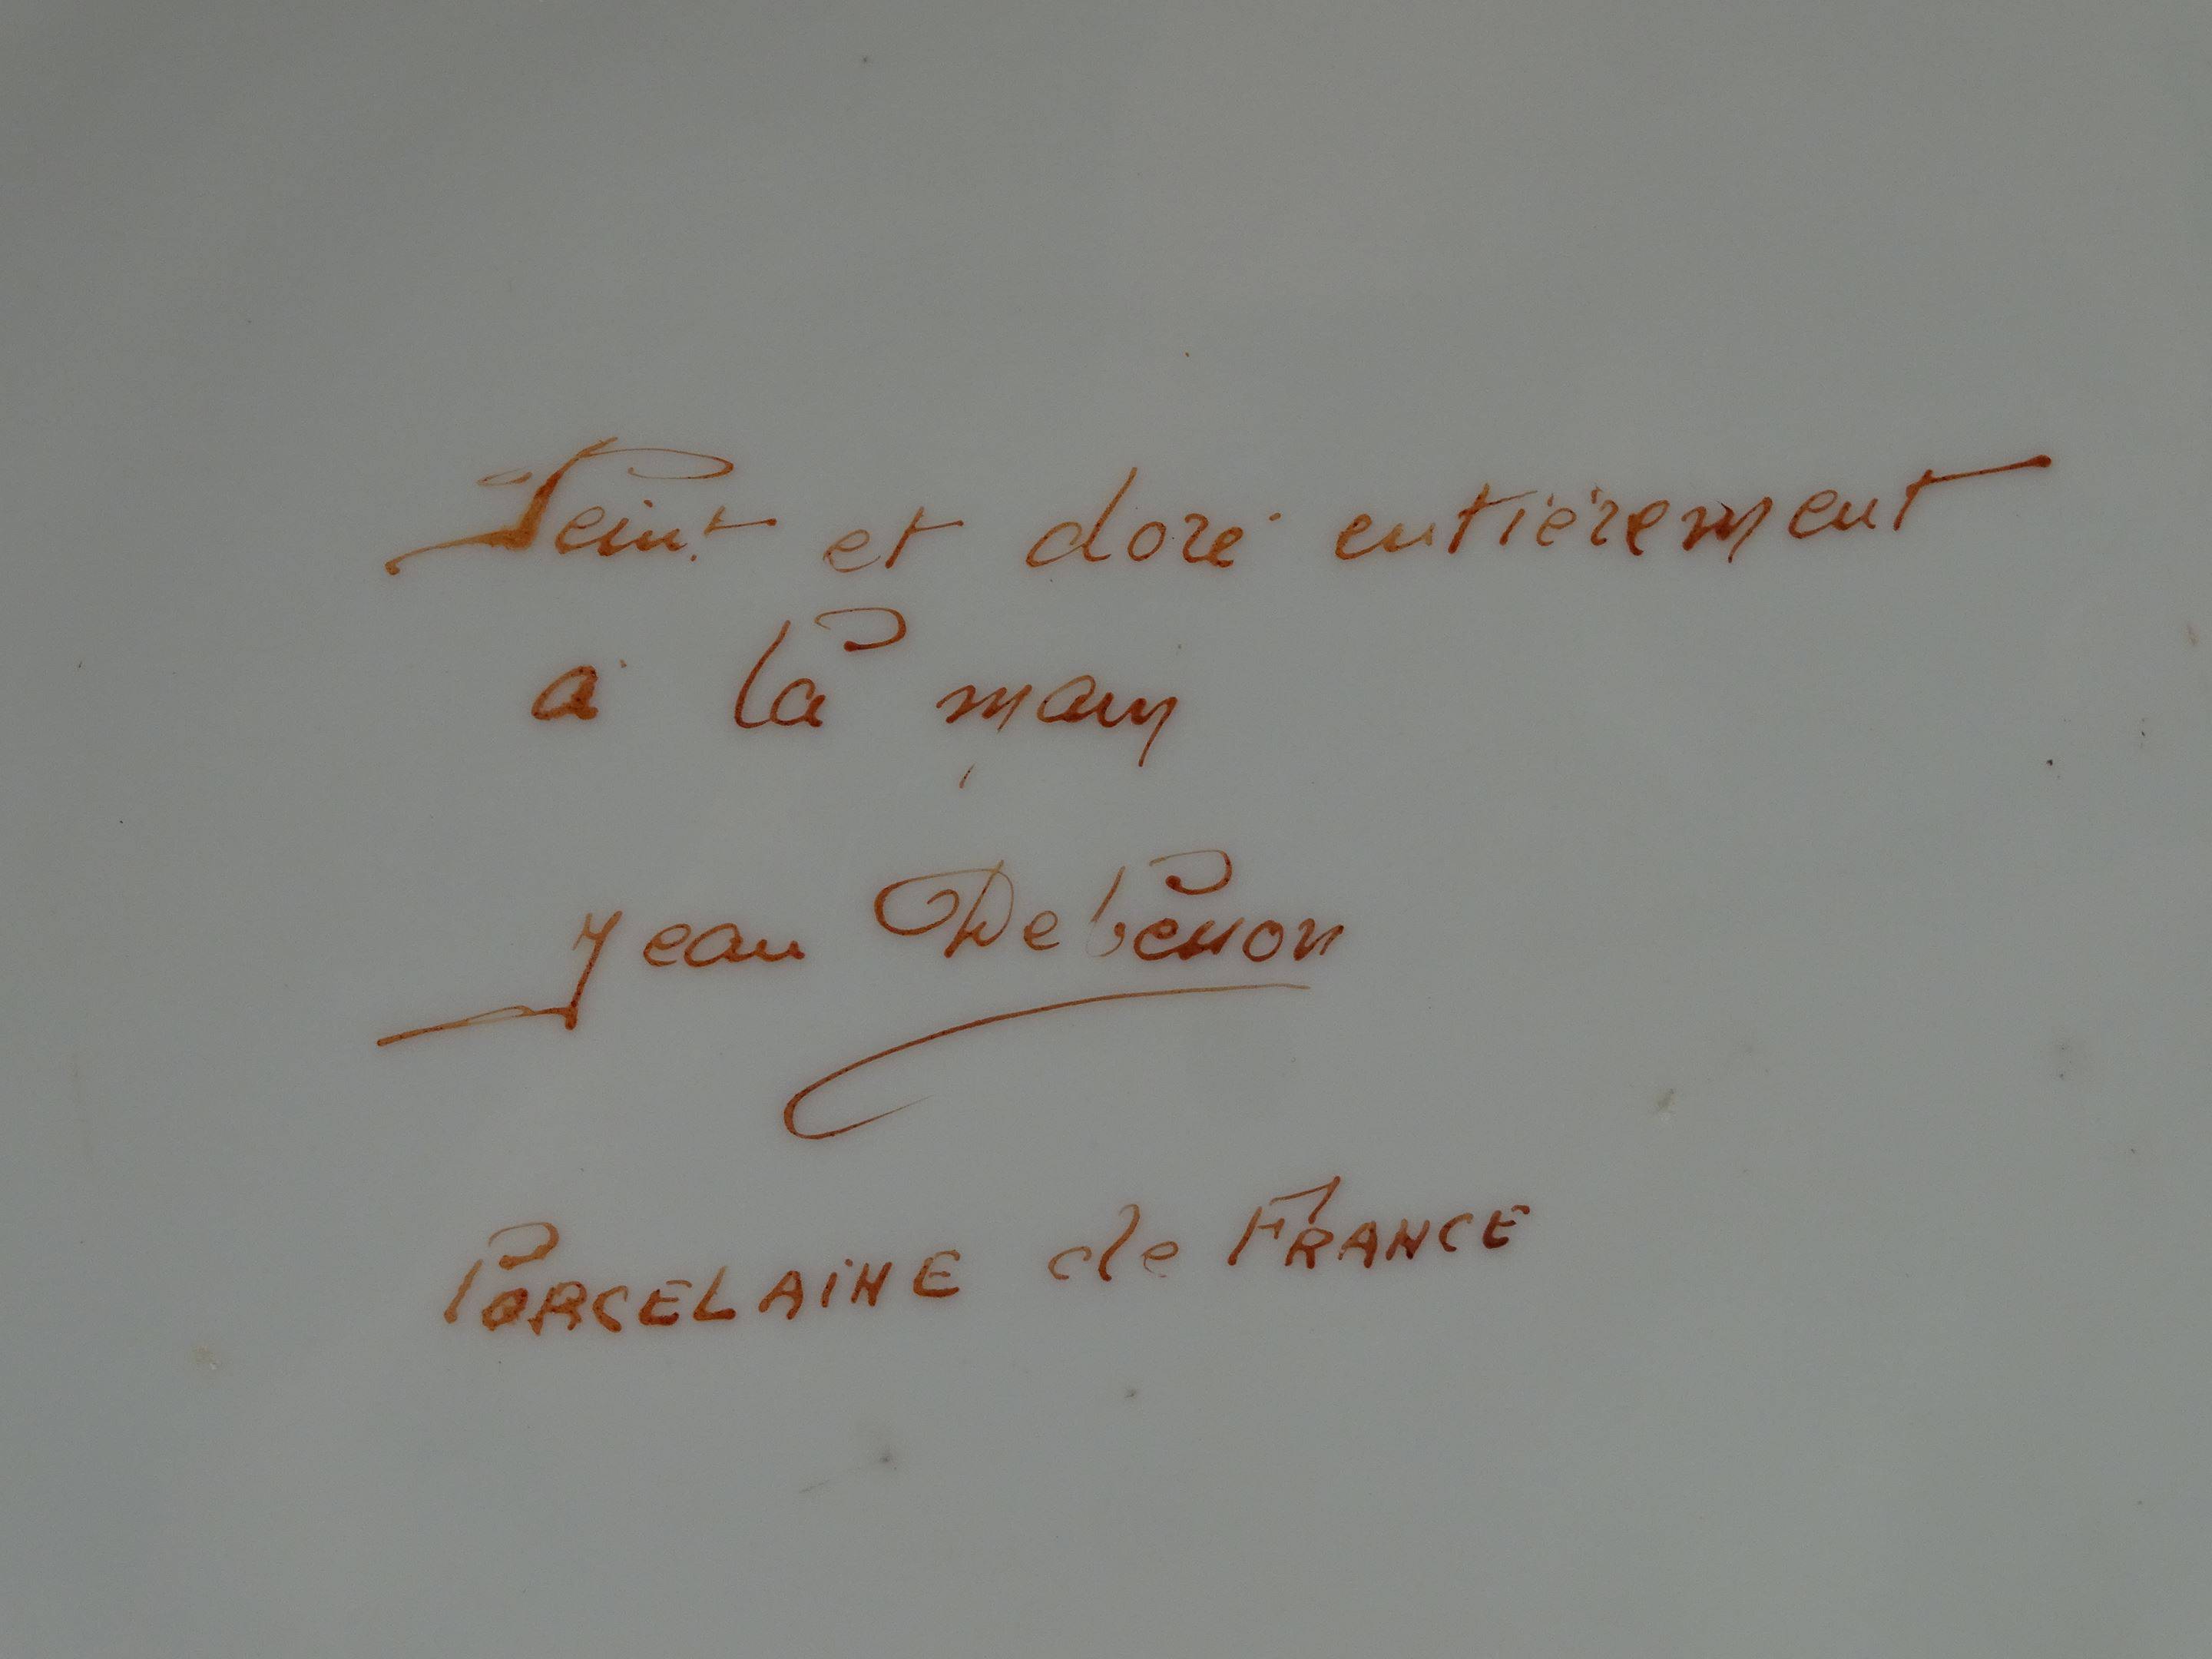 Peint et doré entièrement
à la main
Jean
PORCELAINE de FRANCE